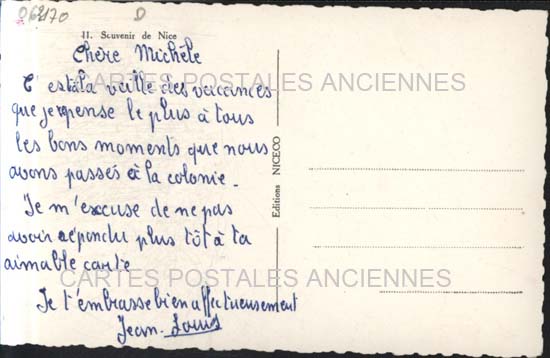 062170 D
11. Souvenir de Nice
Chère Michèle
C'est à la veille des vacances
que je pense le plus à tous
les bons moments que nous
avons passés à la colonie.
Je m'excuse de ne pas
avoir répondu plus tôt à ta
aimable carte
Je t'embrasse bien affectueusement
Jean-Louis
Editions NICECO
CARTES POSTALES ANCIENNES
CARTES POSTALES ANCIENNES